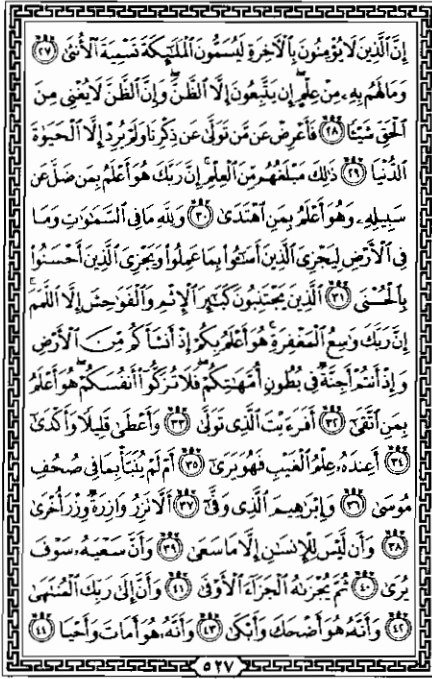 إِنَّ ٱلَّذِينَ لَا يُؤْمِنُونَ بِٱلْأَخِرَةِ لَيُسَمُّونَ ٱلْمَلَٰٓئِكَةَ تَسْمِيَةَ ٱلْأُنثَىٰ ٢٧
وَمَا لَهُم بِهِۦ مِنْ عِلْمٍ ۖ إِن يَتَّبِعُونَ إِلَّا ٱلظَّنَّ ۖ وَإِنَّ ٱلظَّنَّ لَا يُغْنِى مِنَ
ٱلْحَقِّ شَيْـًٔا ٢٨ فَأَعْرِضْ عَن مَّن تَوَلَّىٰ عَن ذِكْرِنَا وَلَمْ يُرِدْ إِلَّا ٱلْحَيَوٰةَ
ٱلدُّنْيَا ٢٩ ذَٰلِكَ مَبْلَغُهُم مِّنَ ٱلْعِلْمِ ۚ إِنَّ رَبَّكَ هُوَ أَعْلَمُ بِمَن ضَلَّ عَن
سَبِيلِهِۦ وَهُوَ أَعْلَمُ بِمَنِ ٱهْتَدَىٰ ٣٠ وَلِلَّهِ مَا فِى ٱلسَّمَٰوَٰتِ وَمَا
فِى ٱلْأَرْضِ لِيَجْزِىَ ٱلَّذِينَ أَسَٰٓـُٔوا۟ بِمَا عَمِلُوا۟ وَيَجْزِىَ ٱلَّذِينَ أَحْسَنُوا۟
بِٱلْحُسْنَى ٣١ ٱلَّذِينَ يَجْتَنِبُونَ كَبَٰٓئِرَ ٱلْإِثْمِ وَٱلْفَوَٰحِشَ إِلَّا ٱللَّمَمَ ۚ
إِنَّ رَبَّكَ وَٰسِعُ ٱلْمَغْفِرَةِ ۚ هُوَ أَعْلَمُ بِكُمْ إِذْ أَنشَأَكُم مِّنَ ٱلْأَرْضِ
وَإِذْ أَنتُمْ أَجِنَّةٌ فِى بُطُونِ أُمَّهَٰتِكُمْ ۖ فَلَا تُزَكُّوٓا۟ أَنفُسَكُمْ ۖ هُوَ أَعْلَمُ
بِمَنِ ٱتَّقَىٰٓ ٣٢ أَفَرَءَيْتَ ٱلَّذِى تَوَلَّىٰ ٣٣ وَأَعْطَىٰ قَلِيلًا وَأَكْدَىٰٓ
٣٤ أَعِندَهُۥ عِلْمُ ٱلْغَيْبِ فَهُوَ يَرَىٰٓ ٣٥ أَمْ لَمْ يُنَبَّأْ بِمَا فِى صُحُفِ
مُوسَىٰ ٣٦ وَإِبْرَٰهِيمَ ٱلَّذِى وَفَّىٰٓ ٣٧ أَلَّا تَزِرُ وَازِرَةٌ وِزْرَ أُخْرَىٰ
٣٨ وَأَن لَّيْسَ لِلْإِنسَٰنِ إِلَّا مَا سَعَىٰ ٣٩ وَأَنَّ سَعْيَهُۥ سَوْفَ
يُرَىٰ ٤٠ ثُمَّ يُجْزَىٰهُ ٱلْجَزَآءَ ٱلْأَوْفَىٰ ٤١ وَأَنَّ إِلَىٰ رَبِّكَ ٱلْمُنتَهَىٰ
٤٢ وَأَنَّهُۥ هُوَ أَضْحَكَ وَأَبْكَىٰ ٤٣ وَأَنَّهُۥ هُوَ أَمَاتَ وَأَحْيَا ٤٤
٥٢٧